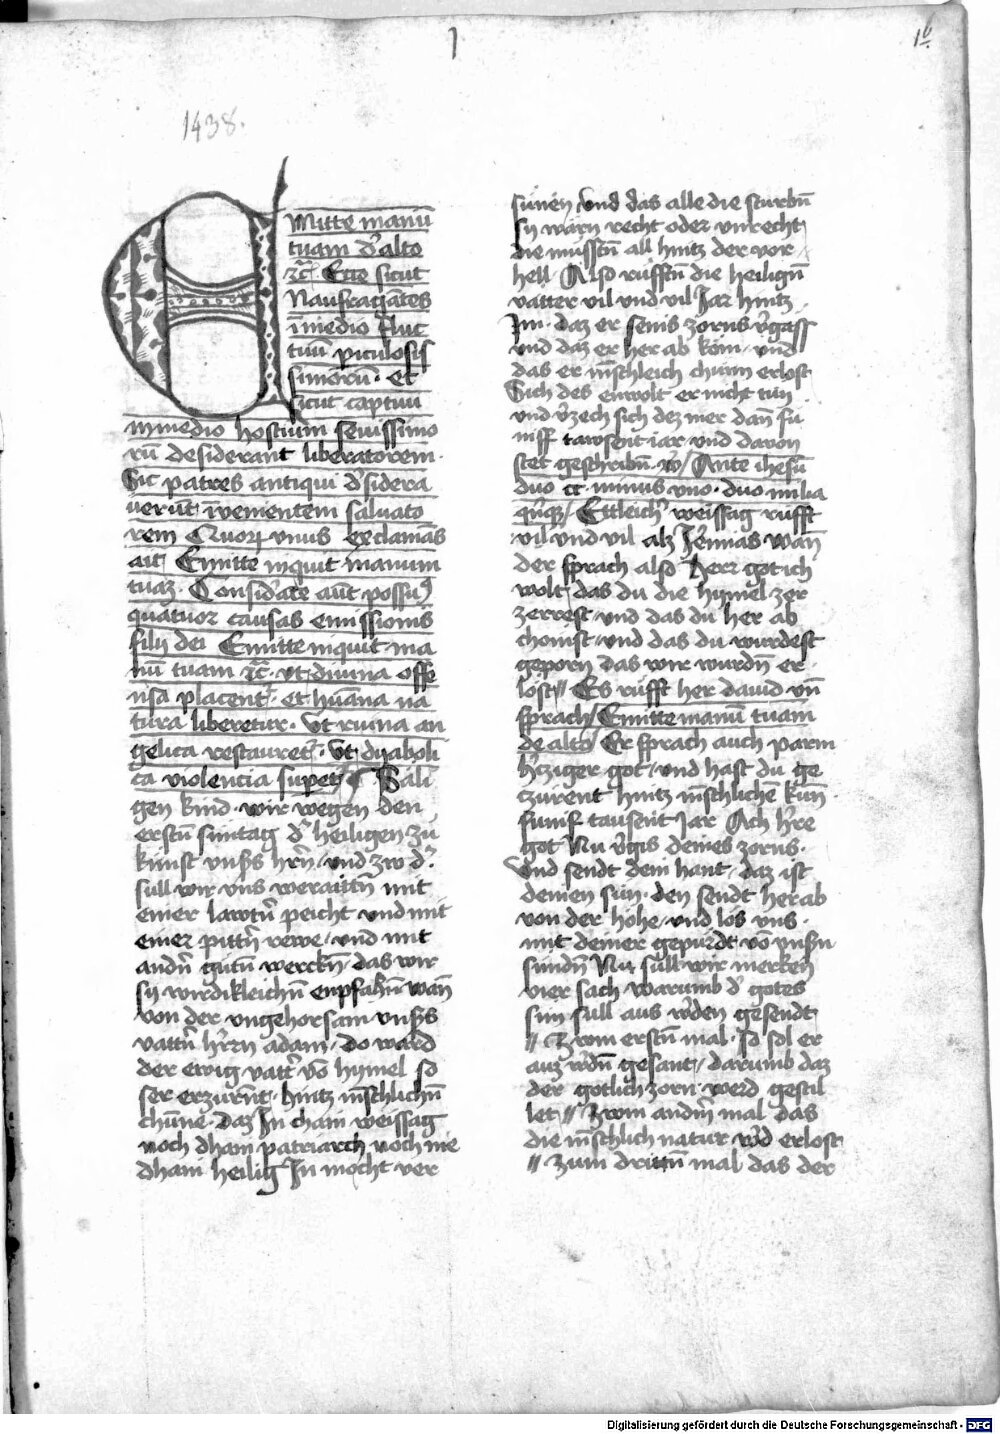 1
16
1438.
Emitte manū
tuam d' alto
ꝛc̄ Ecce sicut
Naufragātes
ī medio fluc
tuū p̲iculosis
simorū · et
sicut captiui
in medio hostium seuissimo
rū desiderant liberatorem ·
Sic patres antiqui d'sidera
uerūt venientem saluato
rem Quorū vnus exclamās
ait Emitte inquit manum
tuaz · Consid'ate aūt possum9
quatuor causas emissionis
filij dei Emitte inquit ma
nū tuam ꝛc̄ · vt diuina offe
nsa placent' · et hūana na
tura liberetur · Vt ruina an
gelica restauret' · Vt dyaboli
ca violencia sup̲et' Säli
gen kind · wir wegen den
erstn̄ suntag d' heiligen zů
kunft vnsers hrn̄ · vnd zw d'
sull wir vns weraittn̄ mit
einer lawtn̄ peicht vnd mit
einer pittn̄ rewe / vnd mit
andn̄ gutn̄ werckn̄ · das wir
sy wirdikleichn̄ enpfahn̄ wan̄
von der vngehorsam vnsers
vattn̄ h'rn adam / do ward
der ewig vatt' vō hymel so
ser erzurn̄t · hintz mēschlichn̄
chūne · daz In chain weissag
noch dhain patriarch noch nie
dhain heilig In mocht ver
sūnen vnd das alle die sturbn̄
sy wärn recht oder vnrecht
die mustn̄ all hintz der vor
hell · Also růfftn̄ die heilign̄
vatter vil vnd vil Jar hintz
Im · daz er seins zorns v'gäss
vnd daz er her ab köm · vnd
das er mēschleich chunn erlost
Sich des enwolt er nicht tun
vnd v'zech sich dez mer dan̄ fu
niff tawsent iar · vnd dauon
stet geschribn̄ · v'/ Ante ihesū
duo cc · minus vno · duo milia
qn̄q3 / Ettleich' weissag růfft
vil vnd vil alz Jermias wan̄
der sprach also herr got ich
wolt das du die hymel zer
zerrest · vnd das du her ab
chömst · vnd das du wurdest
geporn das wir wurdn̄ er
lost // Es růfft her dauid vn̄
sprach / Emitte manū tuam
de alto / Er sprach auch parm
h'cziger got · vnd hast du ge
czürent hintz mēschliche kūn
funif tausent Jar Ach h're
got Nu v'gis deines zorns ·
Vnd sendt dein hant · daz ist
deinen sun · den sendt her ab
von der hohe · vnd lös vns ·
mit deiner gepurdt vō vnsn̄
sundn̄ Nu sull wir merken
vier sach warumb d' gotes
sun sull aus w'den gesendt
// Zwm erstn̄ mal · so sol er
auz w'dn̄ gesant / darumb daz
der gotlich zorn werd gestil
let // Zwm andn̄ mal das
die mēschlich natur w'd erlost
// Zum drittn̄ mal das der
Digitalisierung gefördert durch die Deutsche Forschungsgemeinschaft - DFG